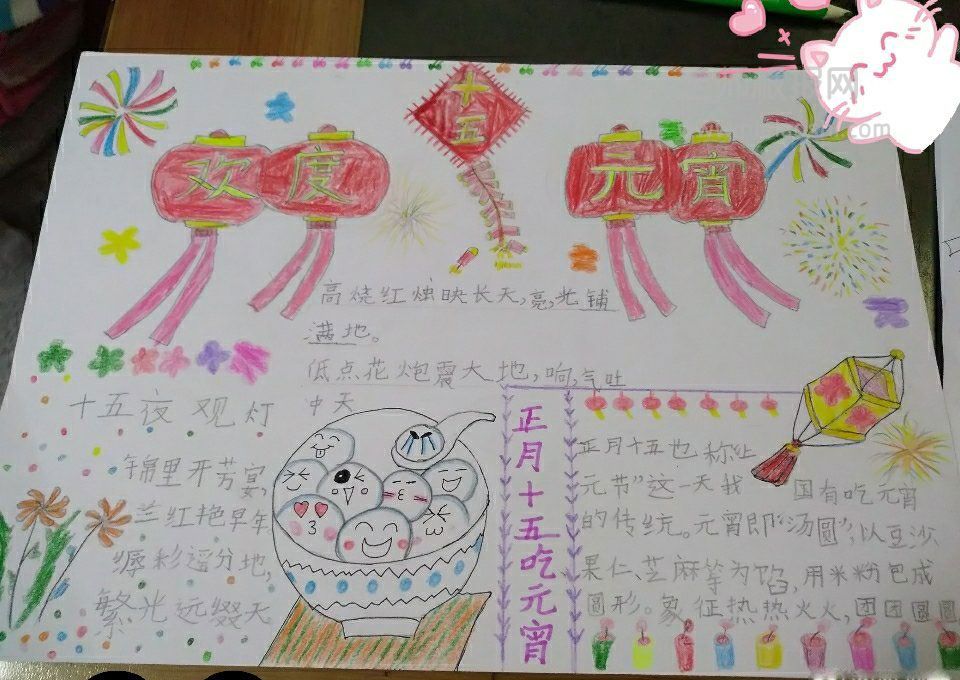 十五
欢度
元宵
高烧红烛映长天,亮,光铺
满地。
低点花炮震大地,响,气吐
中天
十五夜观灯
锦里开芳宴,
兰红艳早年
缛彩遥分地,
繁光远缀天
正月十五吃元宵
正月十五也称上
元节”这一天我国有吃元宵
的传统。元宵即“汤圆”,以豆沙
果仁、芝麻等为馅,用米粉包成
圆形。象征热热火火,团团圆圆
网
com